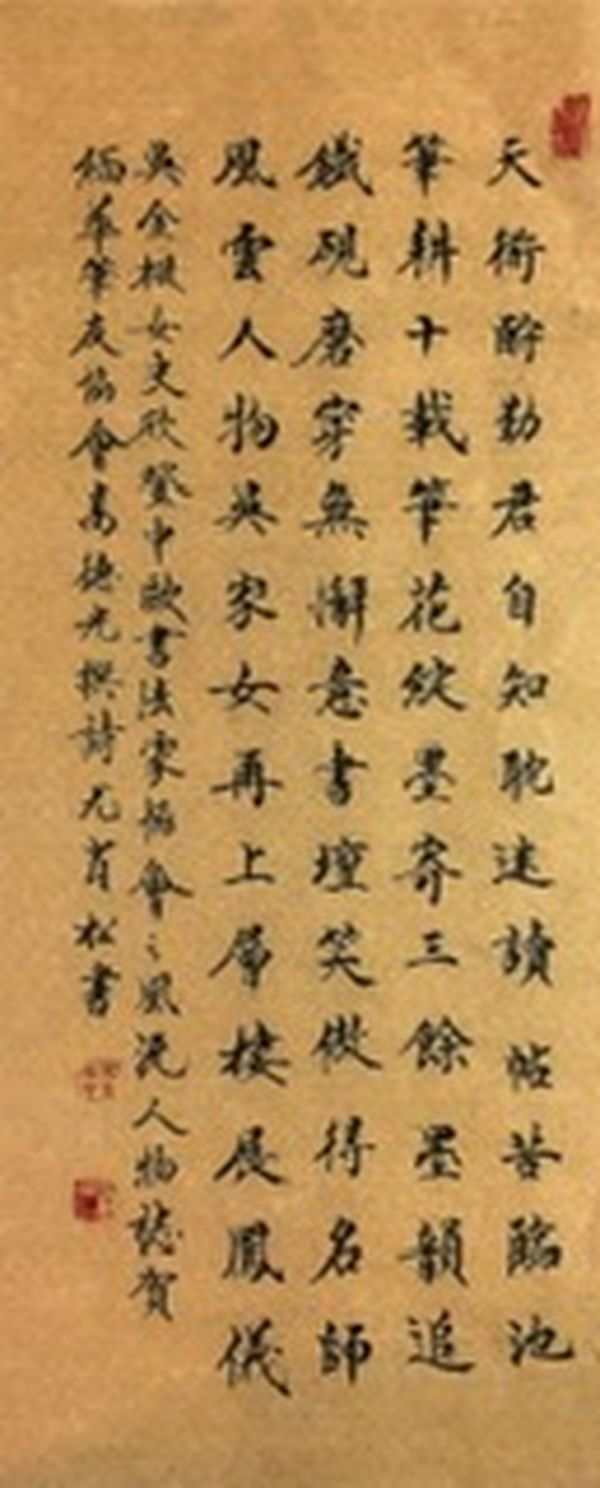 天衜酬勤君自知耽迷讀帖苦臨池
筆耕十載筆花綻墨寄三餘墨韻追
鐵硯磨穿無懈意書壇笑傲得名師
風雲人物吳家女再上層樓展鳳儀
吳金
女史欣登中歐書法家協會之風流人物誌賀
緬華筆友協會高德光撰詩尤有松書